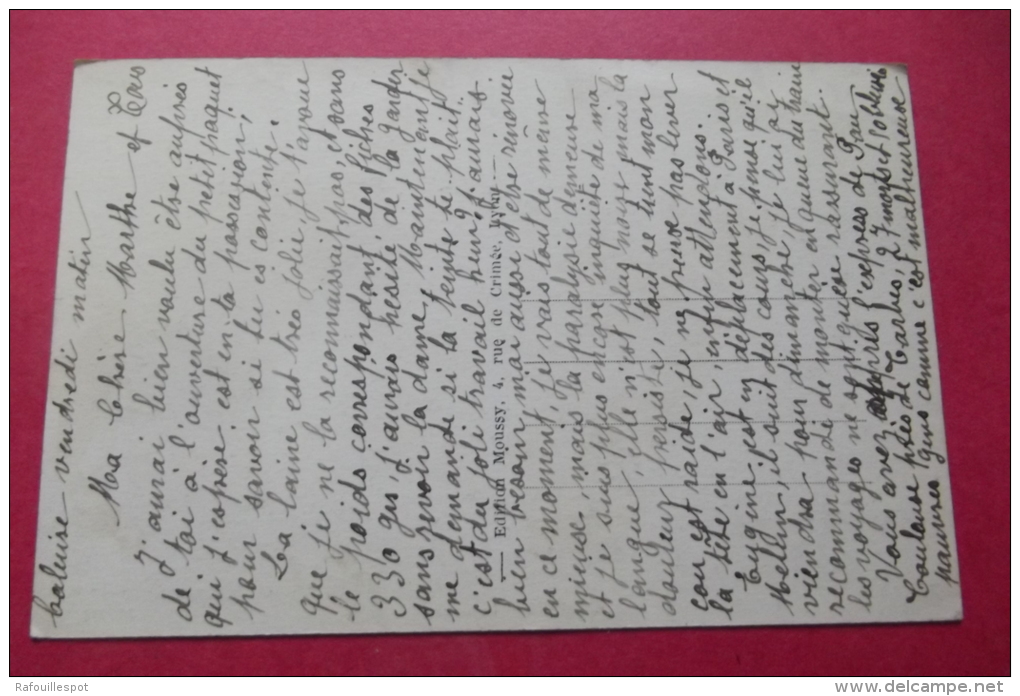 Caluire vendredi matin
Ma chère Marthe et Cours
J'aurai bien voulu être auprès
de toi à l'ouverture du petit paquet
qui j'espère est en ta possession,
pour savoir si tu es contente.
La laine est très jolie je t'avoue
que je ne la reconnaissait pas, et sans
le poids correspondant des fiches
330 grs, j'aurais hésité de la garder
sans revoir la dame. Maintenant je
me demande si la teinte te plait.
c'est du joli travail hein, j'aurais
bien besoin moi aussi d'être rénovée
— Edition Moussy, 4, rue de Crimée, Hyay —
en ce moment, je vais tout de même
mieux, mais la paralysie demeure
et je suis plus encore inquiète de ma
langue, elle n'est plus noire mais la
douleur persiste, tout se tient mon
cou est raide, je ne pense pas lever
la tête en l'air, enfin attendons.
Eugène est en déplacement à Paris et
Melun, il suit des cours, je pense qu'il
viendra pour dimanche je lui ai
recommandé de monter en queue du train
les voyages ne sont guère rassurant.
Vous avez appris l'express de Pau
Toulouse près de Tarbes, 27 morts et 50 blessés
pauvres gens comme c'est malheureuse
Rafouillespot
www.delcampe.net